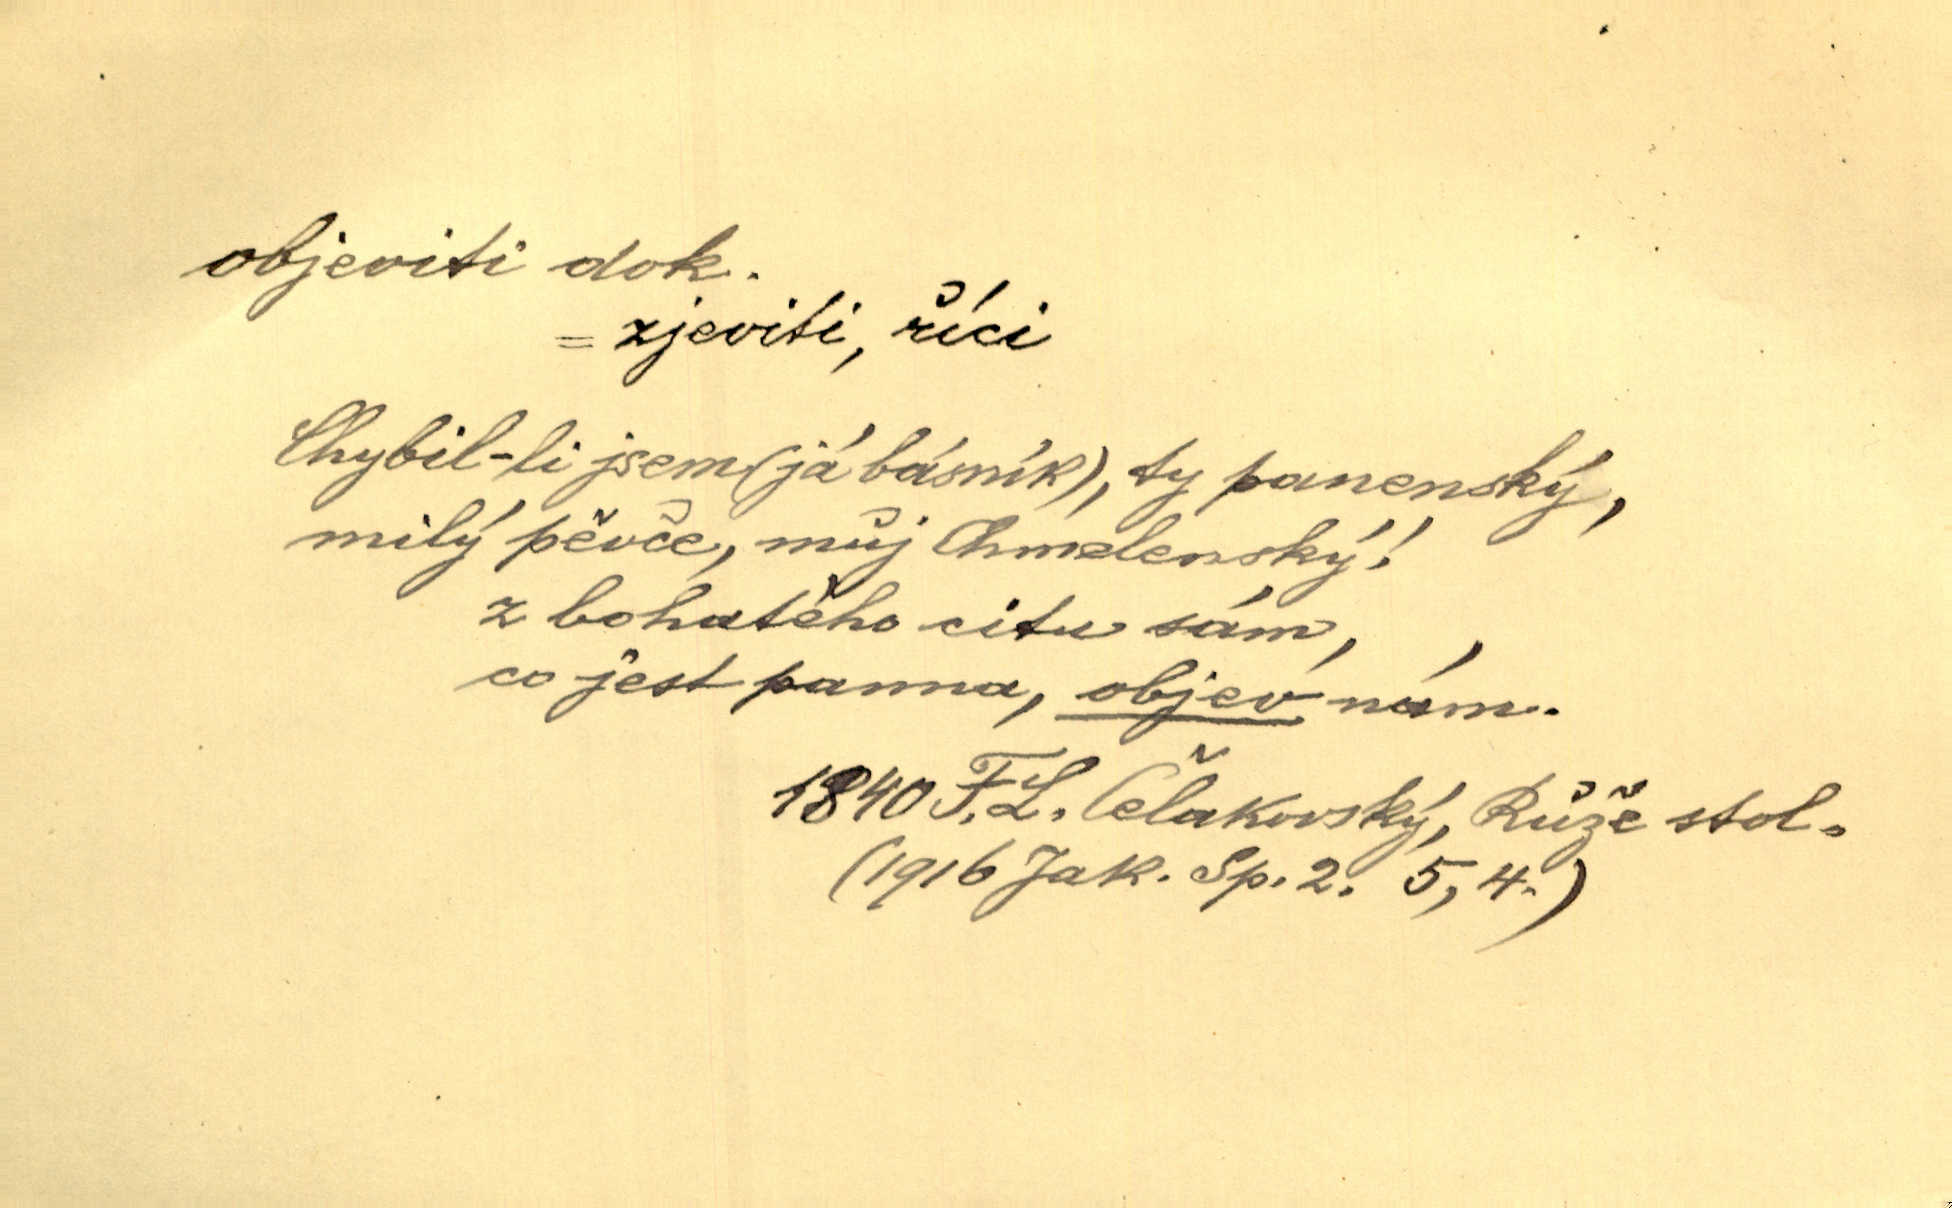 objeviti dok.
= zjeviti, říci
Chybil-li jsem (já básník), ty panenský,
milý pěvče, můj Chmelenský!
z bohatého citu sám,
co jest panna, objev nám.
1840 F. L. Čelakovský, Růže stol.
(1916 Jak. Sp. 2. 5, 4.)